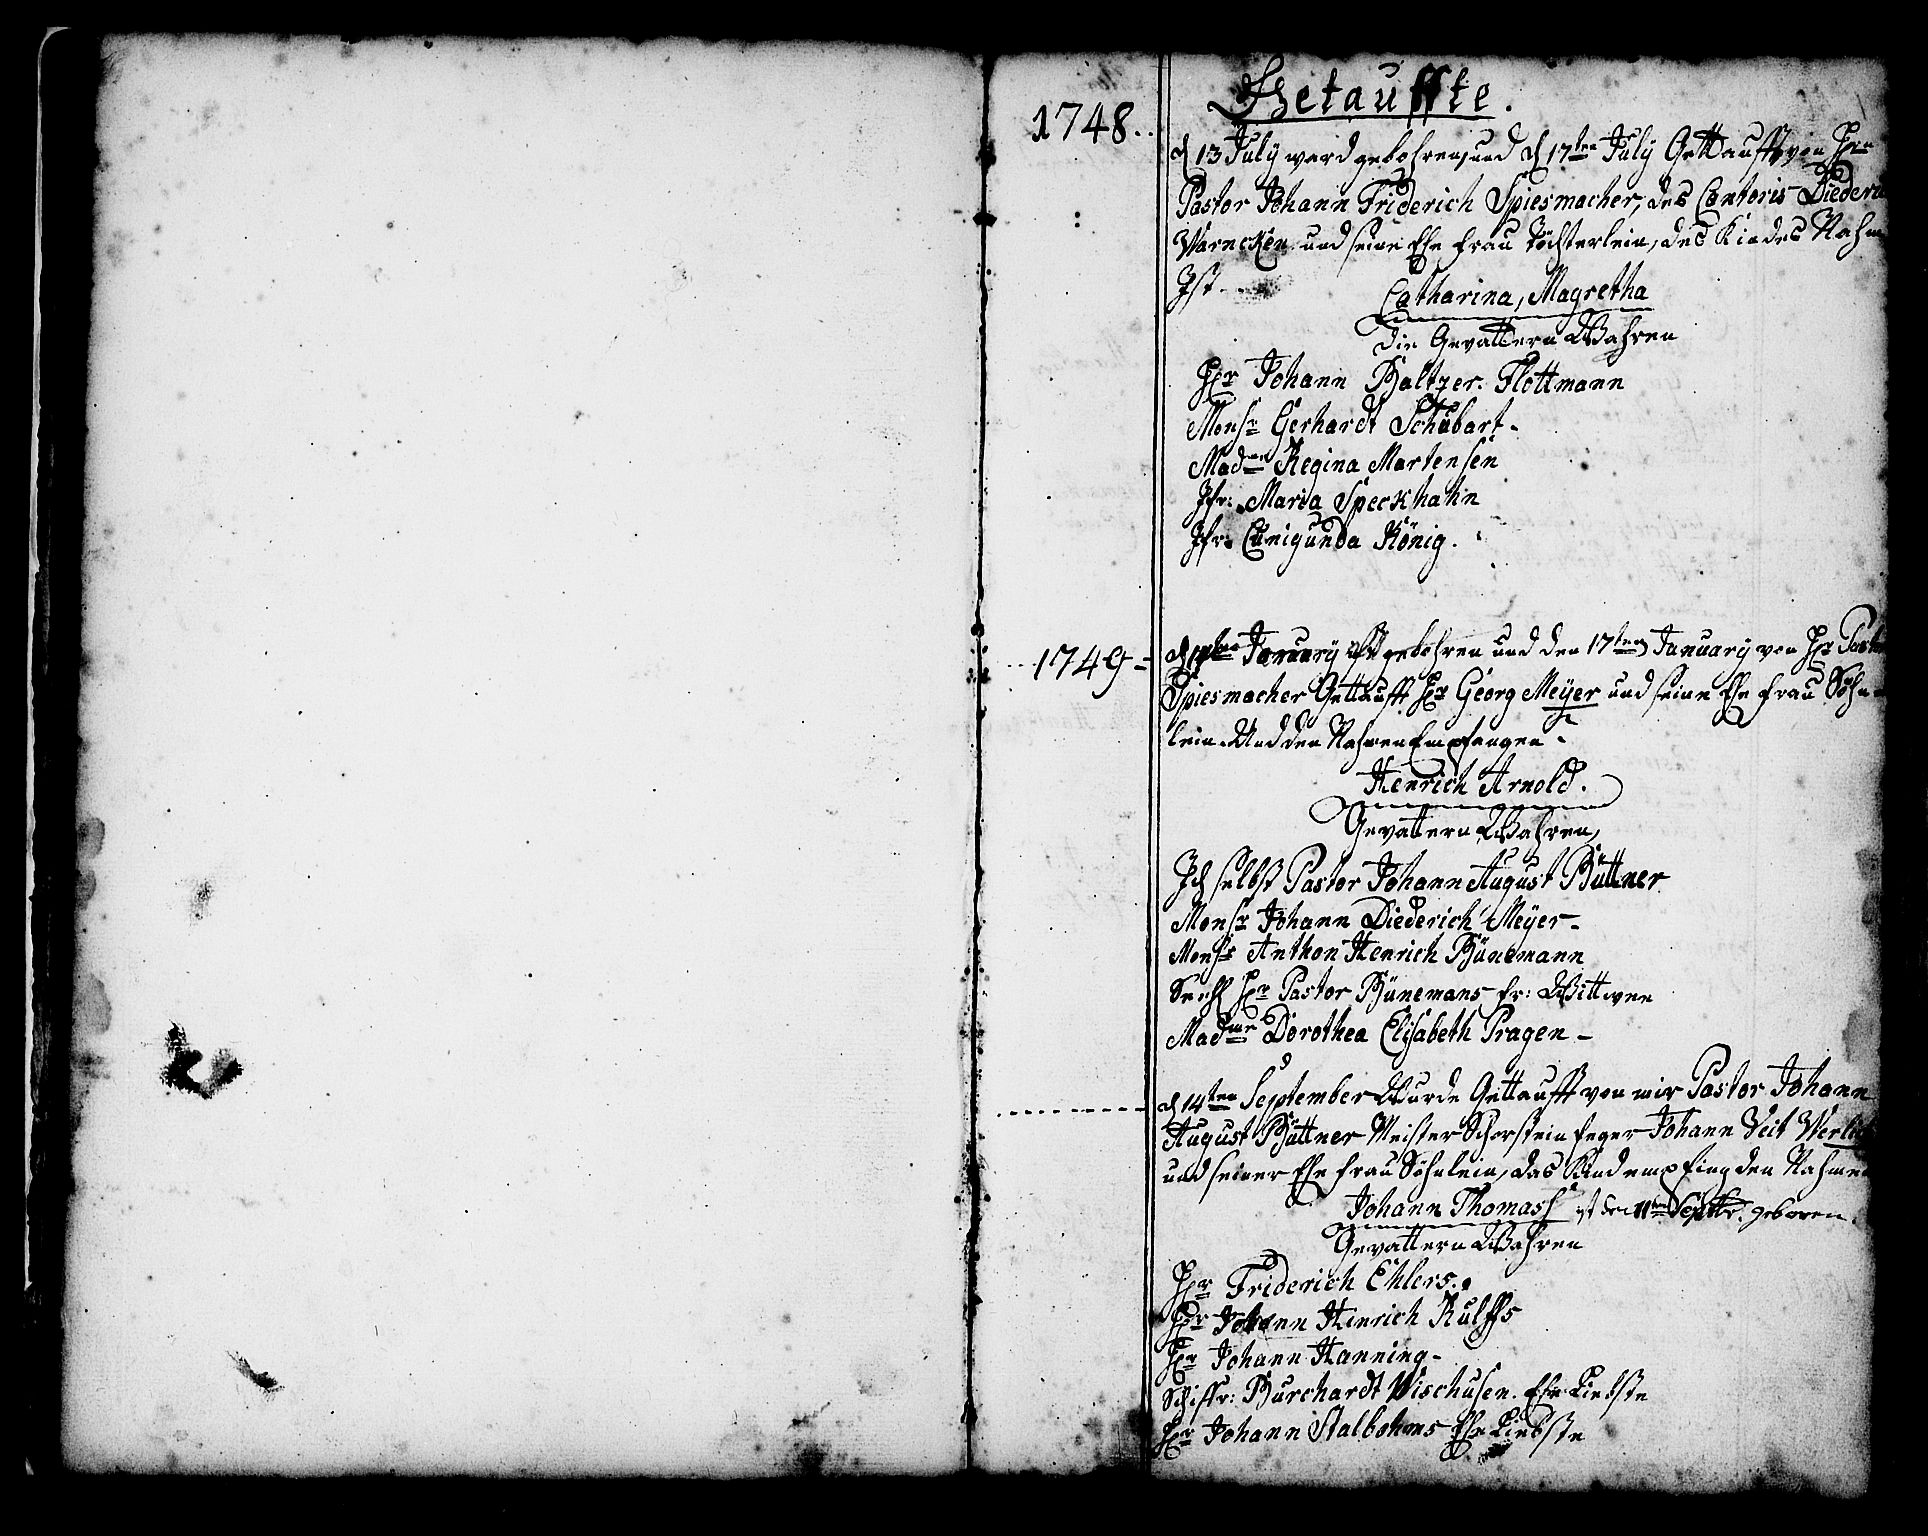 Getauffte.
1748.
d 13 July ward gebohren, und d 17ten July Gettaufft von Hrn
Pastor Johann Friderich Spiesmacher, des Cantoris Diederi
Warncken und seine Ehe frau töchterlein, des Kindes Nahm
Ist
Catharina, Magretha
die Gevattern Wahren
Hr Johann Baltzer Flottmann
Monsr Gerhardt Schubart
Madme Regina Martensen
Jfr: Maria Speckhahn
Jfr: Cunigunda König.
1749
January ist gebohren und den 17ten January von Hr Pastor
Spiesmacher Gettaufft Hr Georg Meÿer und seine Ehe frau Söhn-
lein. Und den Nahmen Empfangen
Henrich Arnold.
Gevattern Wahren,
Ich selbst Pastor Johann August Büttner
Monsr Johann Diederich Meÿer
Monsr Anthon Henrich Bünemann
Seel Hr Pastor Bünemans fr: Wittwen
Madme Dorothea Elisabeth Pragen
d 14ten September Wurde Gettaufft von mir Pastor Johann
August Büttner Meister Schorstein feger Johann Veit
und seiner Ehe frau Söhnlein, das Kind empfing den Nahmen
Johann Thomass ist den 11ten Septbr. geboren.
Gevattern Wahren
Hr Friderich Ehlers.
Hr Johann Henrich Rulffs
Hr Johann Hanning
Schiffr: Burchardt Wischusen Ehe Liebste
Hr Johann Stalbohms Ehe Liebste